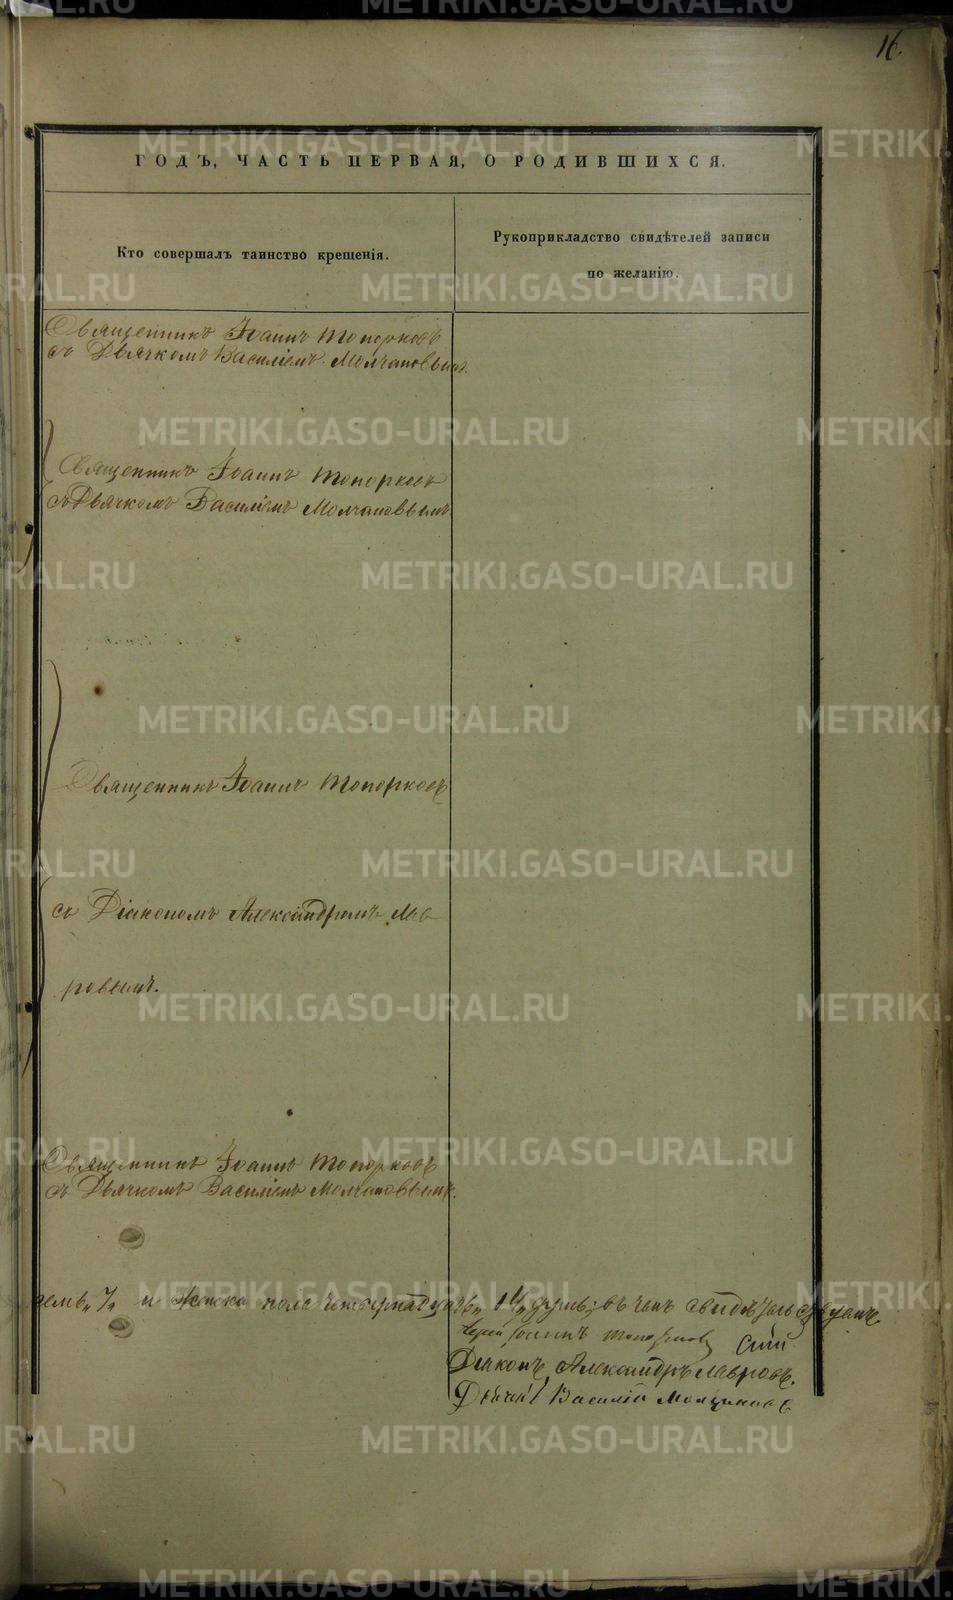 16.
ГОДЪ, ЧАСТЬ ПЕРВАЯ, О РОДИВШИХСЯ.
Кто совершалъ таинство крещенія.
Рукоприкладство свидѣтелей записи
по желанію.
Священникъ Іоаннъ Топорковъ
съ Дьячкомъ Василіемъ Молчановымъ.
Священникъ Іоаннъ Топорковъ
съ Дьячкомъ Василіемъ Молчановымъ
Священникъ Іоаннъ Топорковъ
съ Діакономъ Александромъ Лав-
ровымъ.
Священникъ Іоаннъ Топорковъ
съ Дьячкомъ Василіемъ Молчановымъ.
и Женска пола четырнадцать 14 душъ; въ чемъ свидѣтельствуемъ.
Іерей Іоаннъ Топорковъ
Діаконъ Александръ Лавровъ.
Дьячекъ Василій Молчановъ
METRIKI.GASO-URAL.RU